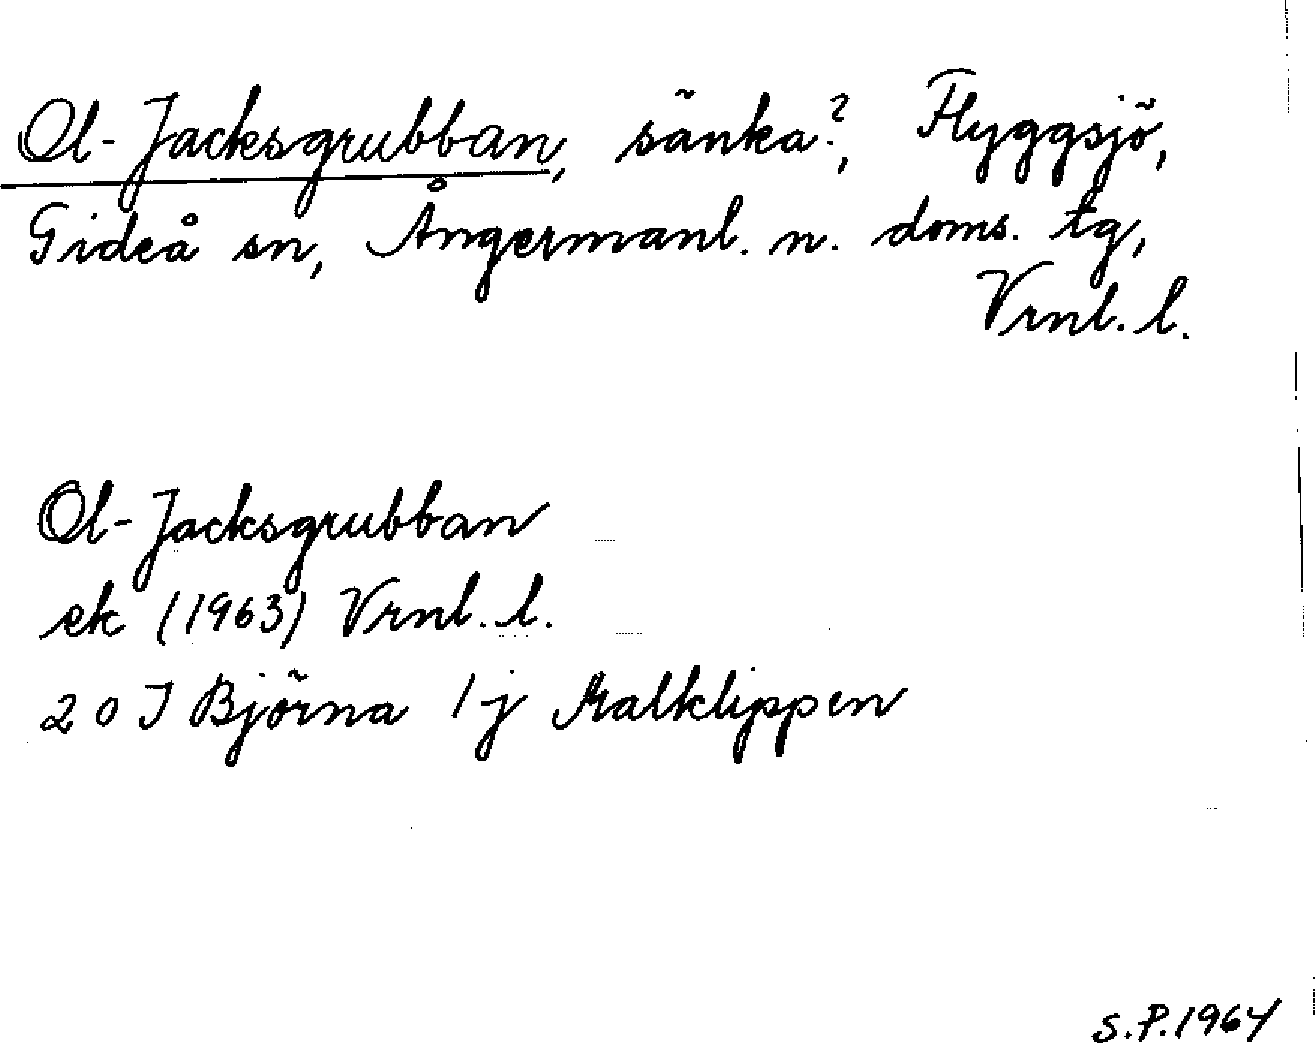 Ol-Jacksgrubban, sänka?, Flyggsjö,
Gideå sn, Ångermanl. n. doms. tg,
Vrnl. l.
Ol-Jacksgrubban
ek (1963) Vrnl. l.
20 J Björna 1j Kalklippen
S.P. 1964